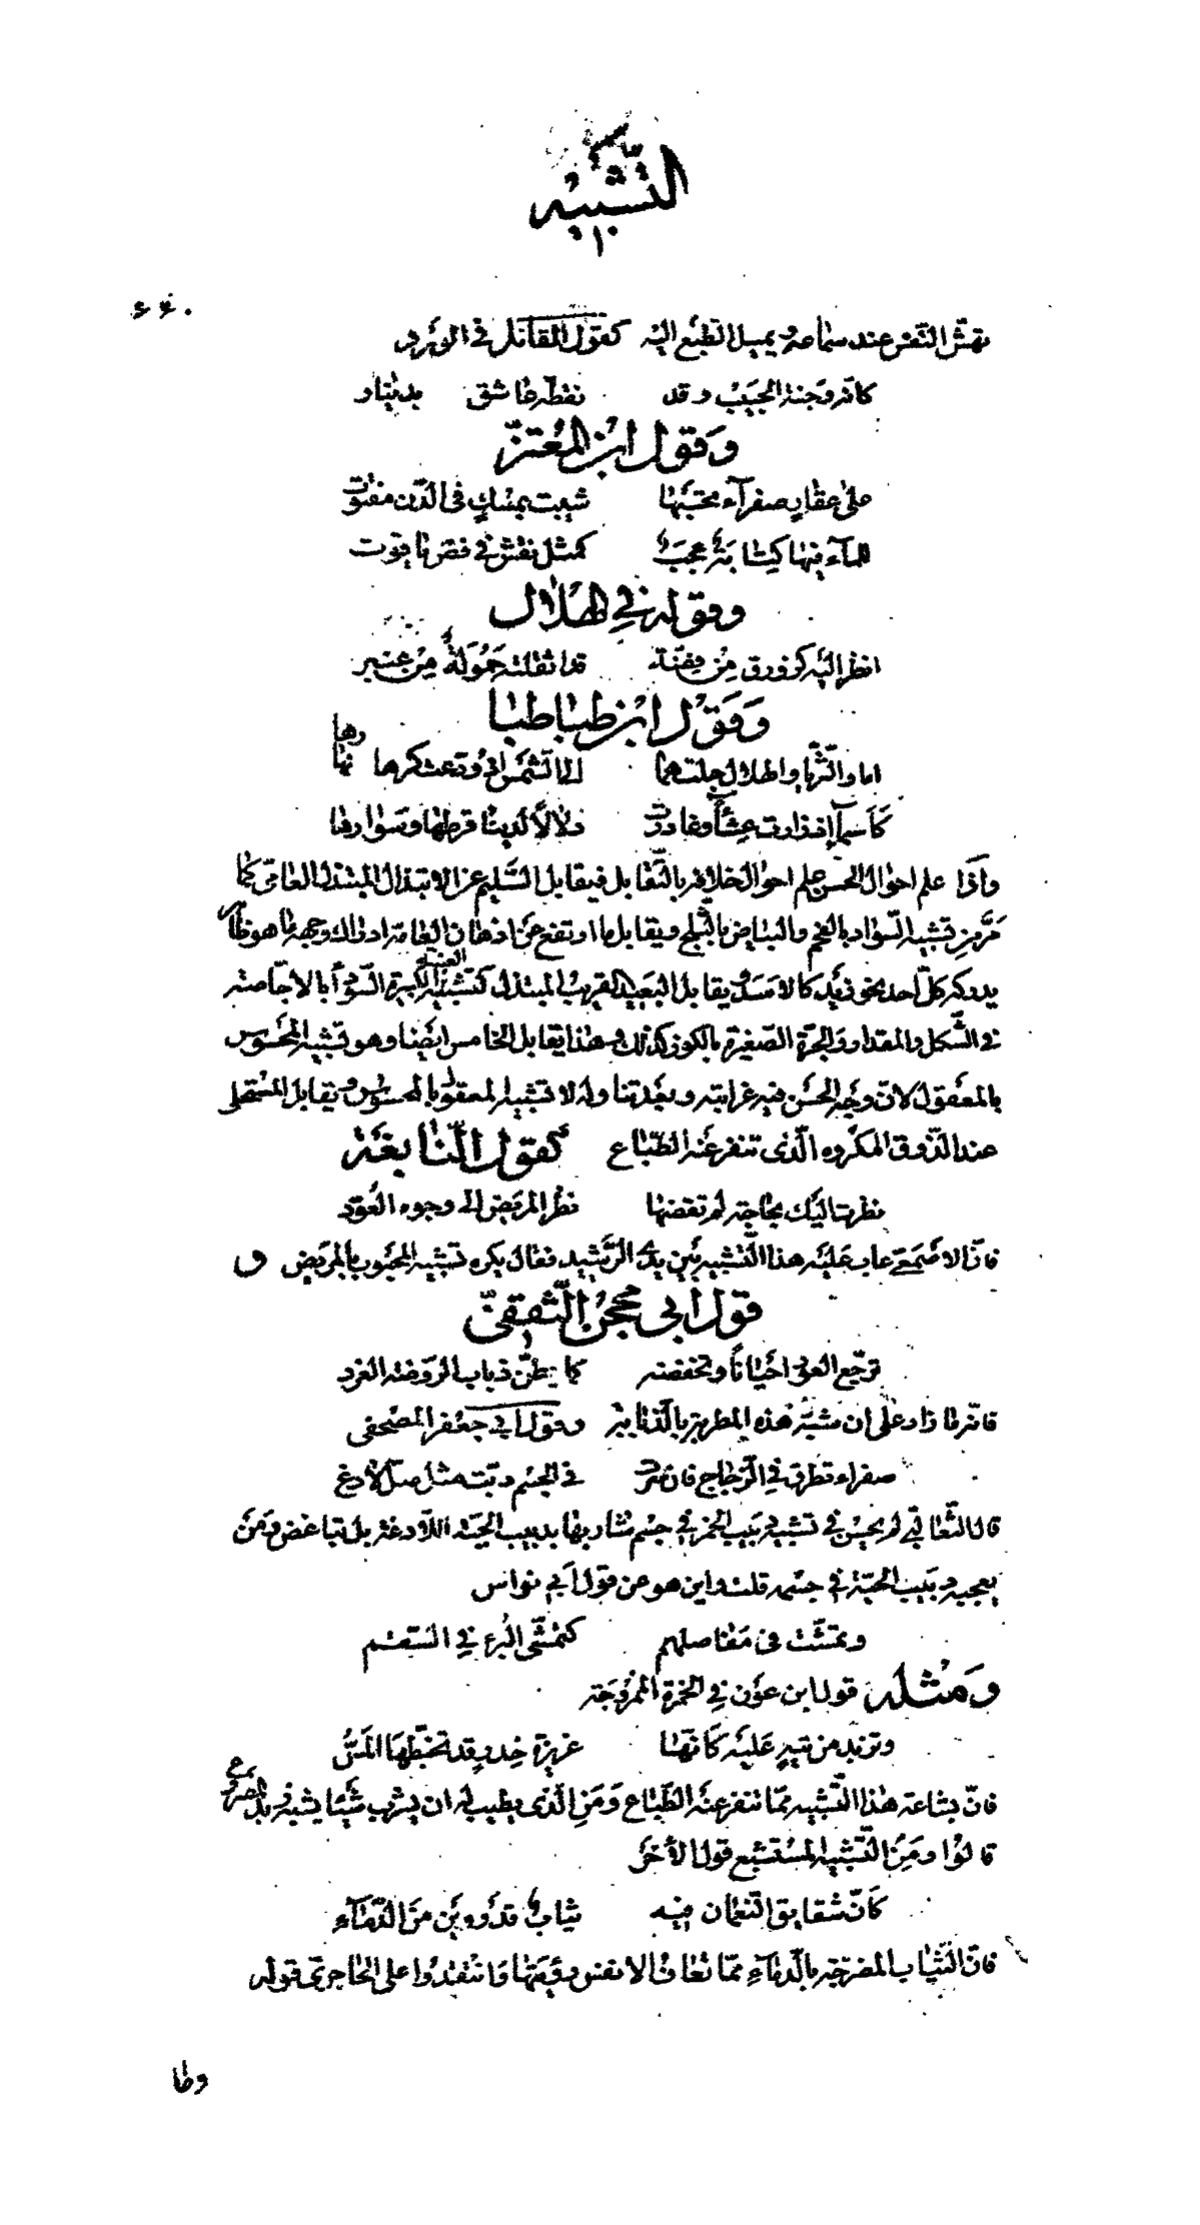 التشبيه
١٠
٤٤٠
تهش النفس عند سماعه ويميل الطبع اليه كقول القائل في الورد
كأنه وجنة الحبيب وقد نقطه عاشق بدينار
وقول ابن المعتز
على عقار صفرآء تحسبها شيبت بمسك في الدن مفتوت
للمآء فيها كتابة عجب كمثل نقش في فص ياقوت
وقوله في الهلال
انظر اليه كزورق من فضة قد اثقلته حمولة من عنبر
وقول ابن طباطبا
اما والثريا والهلال جلتهما لي الشمس اذ ودعت كرها نهارها
كأسمآء اذ زارت عشآء وغادرت دلالاً لدينا قرطها وسوارها
واذا علم احوال الحسن علم احوال خلافه بالتقابل فيقابل السليم عن الابتذال المبتذل العامي كما
مر من تشبيه السواد بالفحم والبياض بالثلج ويقابل ما ارتفع عن اذهان العامة ادراك وجهه ما هو ظاهر
يدركه كل احد نحو زيد كالاسد ويقابل البعيد القريب المبتذل كتشبيه العنبة الكبيرة السودآء بالاجاصة
في الشكل والمقدار والجرة الصغيرة بالكوز كذلك وهذا يقابل الخامس ايضا وهو تشبيه المحسوس
بالمعقول لان وجه الحسن فيه غرابته وبعد تناوله لا تشبيه المعقول بالمحسوس ويقابل المستحلى
عند الذوق المكروه الذي تنفر عنه الطباع كقول النابغة
نظرت اليك بحاجة لم تقضها نظر المريض الى وجوه العود
فان الاصمعي عاب عليه هذا التشبيه بين يدي الرشيد فقال يكره تشبيه المحبوب بالمريض و
قول أبي محجن الثقفي
ترجع العود احيانا وتخفضه كما يطن ذباب الروضة الغرد
فانه ما زاد على ان شبه هذه المطربة بالذبابة وقول أبي جعفر المصحفي
صفراء تطرق في الزجاج فان سرت في الجسم دبت مثل صل لادغ
قال الثعالبي لم يحسن في تشبيه دبيب الخمر في جسم شاربها بدبيب الحية اللادغة بل تباغض ومن
يعجبه دبيب الحية في جسمه قلت واين هو من قول أبي نواس
وتمشت في مفاصلهم كتمشي البرء في السقم
ومثله قول ابن عون في الخمرة الممزوجة
وتزبد من تيه عليه كأنها عزيزة خدر قد تخبطها المس
فان بشاعة هذا التشبيه مما تنفر عنه الطباع ومن الذي يطيب له ان يشرب شيئا يشبه زبد المصروع
قالوا ومن التشبيه المستبشع قول الآخر
كأن شقايق النعمان فيه ثياب قد روين من الدمآء
فان الثياب المضرجة بالدمآء مما تعاف الانفس رؤيتها وانتقدوا على الحاجري قوله
وما